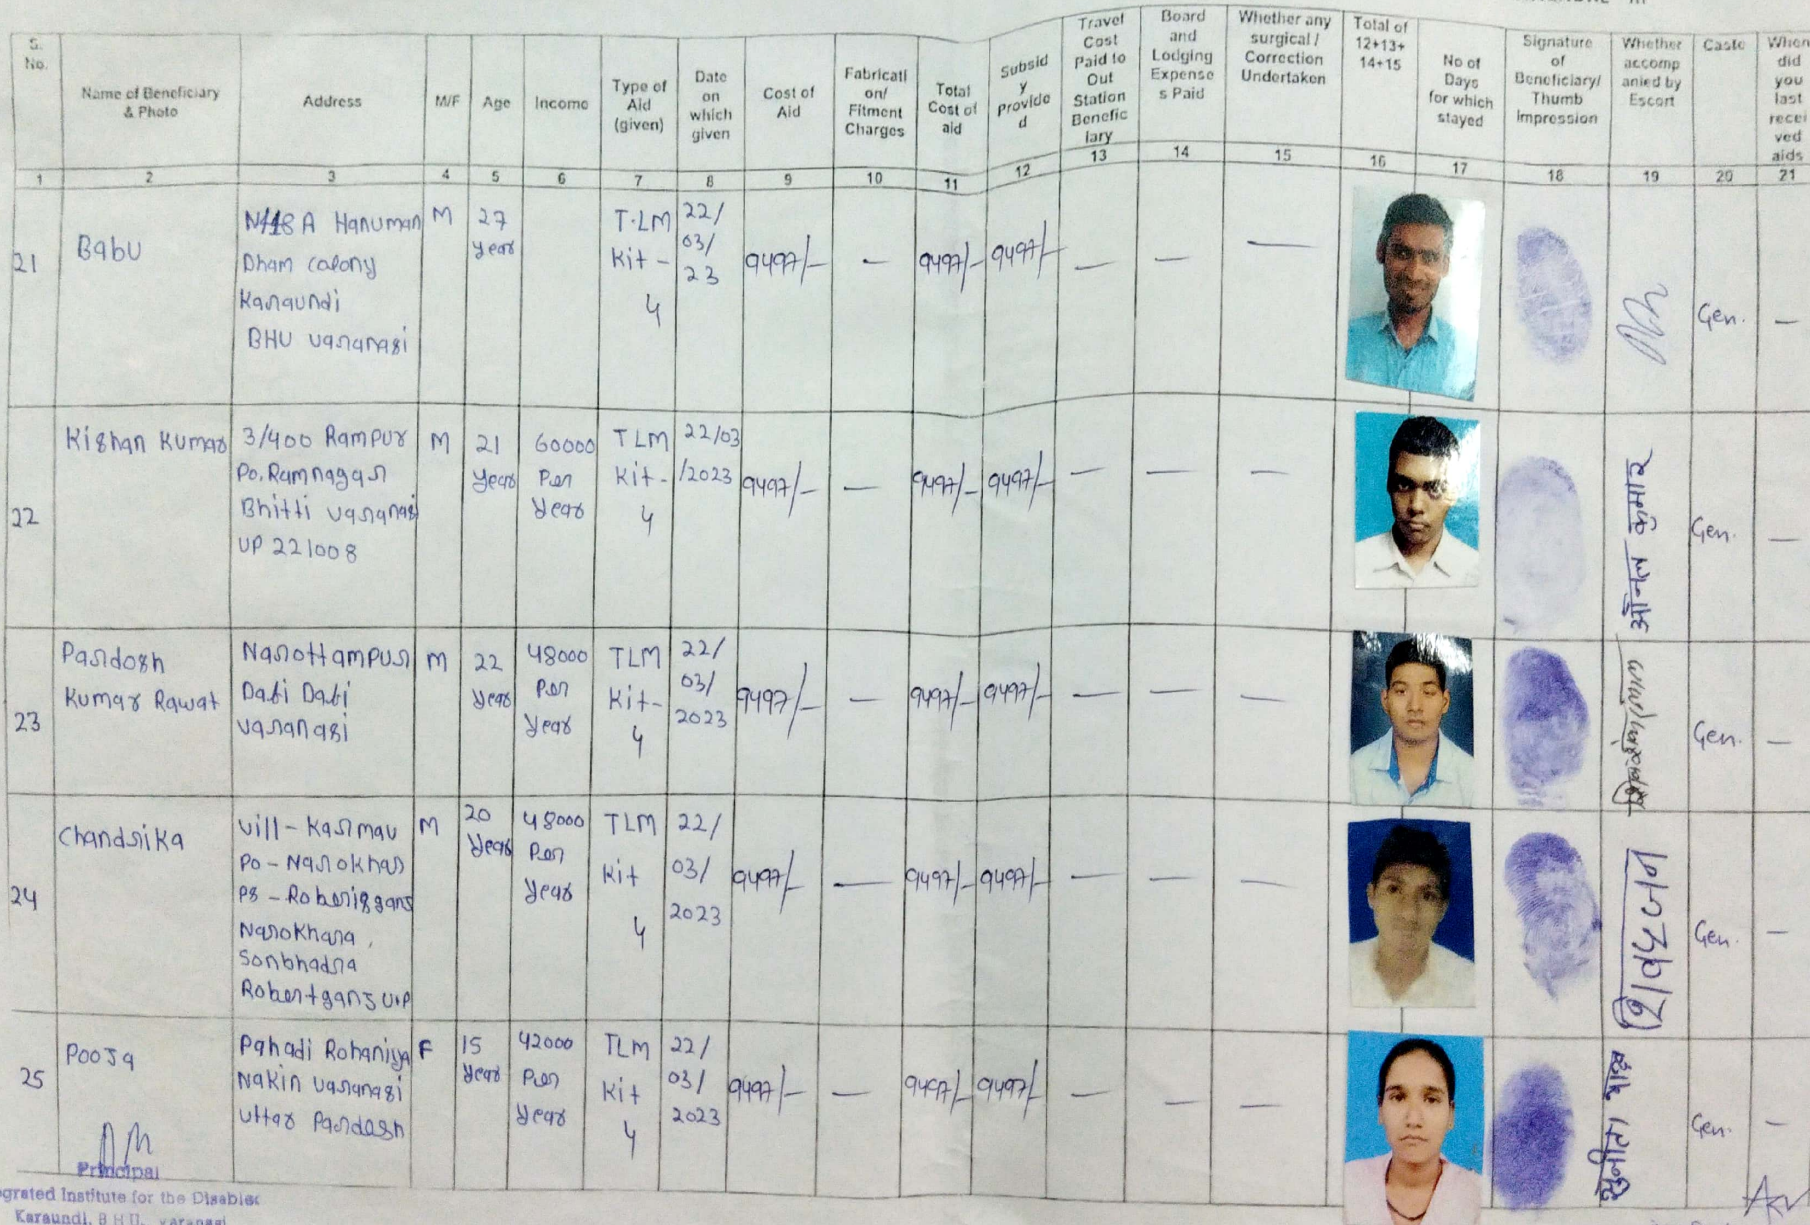 S. No.
Name of Beneficiary & Photo
Address
M/F
Age
Income
Type of Aid (given)
Date on which given
Cost of Aid
Fabricati on/ Fitment Charges
Total Cost of aid
Subsid y Provide d
Travel Cost Paid to Out Station Benefic iary
Board and Lodging Expense s Paid
Whether any surgical / Correction Undertaken
Total of 12+13+ 14+15
No of Days for which stayed
Signature of Beneficiary/ Thumb Impression
Whether accomp anied by Escort
Caste
When did you last recei ved aids
1 2 3 4 5 6 7 8 9 10 11 12 13 14 15 16 17 18 19 20 21
21 Babu
A Hanuman
Dham colony
Karaundi
BHU varanasi
M 27 year
T.LM Kit - 4
22/ 03/ 23
9497/- — 9497/- 9497/- — — —
Gen. —
22 Kishan Kumar
3/400 Rampur
Po. Ramnagar
Bhitti varanasi
UP 221008
M 21 year
60000 Per year
TLM Kit - 4
22/03 /2023
9497/- — 9497/- 9497/- — — —
Gen. —
23 Pardosh
Kumar Rawat
Narottampur
Dafi Dafi
varanasi
M 22 year
48000 Per year
TLM Kit- 4
22/ 03/ 2023
9497/- — 9497/- 9497/- — — —
Gen. —
24 Chandrika
vill - Karmau
Po - Narokhar
PS - Roberisganj
Narokhara,
Sonbhadra
Robertganj U.P
M 20 year
48000 Per year
TLM Kit 4
22/ 03/ 2023
9497/- — 9497/- 9497/- — — —
चन्द्रिका
Gen. —
25 Pooja
Pahadi Rohaniya
Nakin varanasi
Uttar Pardesh
F 15 year
42000 Per year
TLM Kit 4
22/ 03/ 2023
9497/- — 9497/- 9497/- — — —
Gen. —
Principal
grated Institute for the Disabled
Karaundi, B.H.U., Varanasi